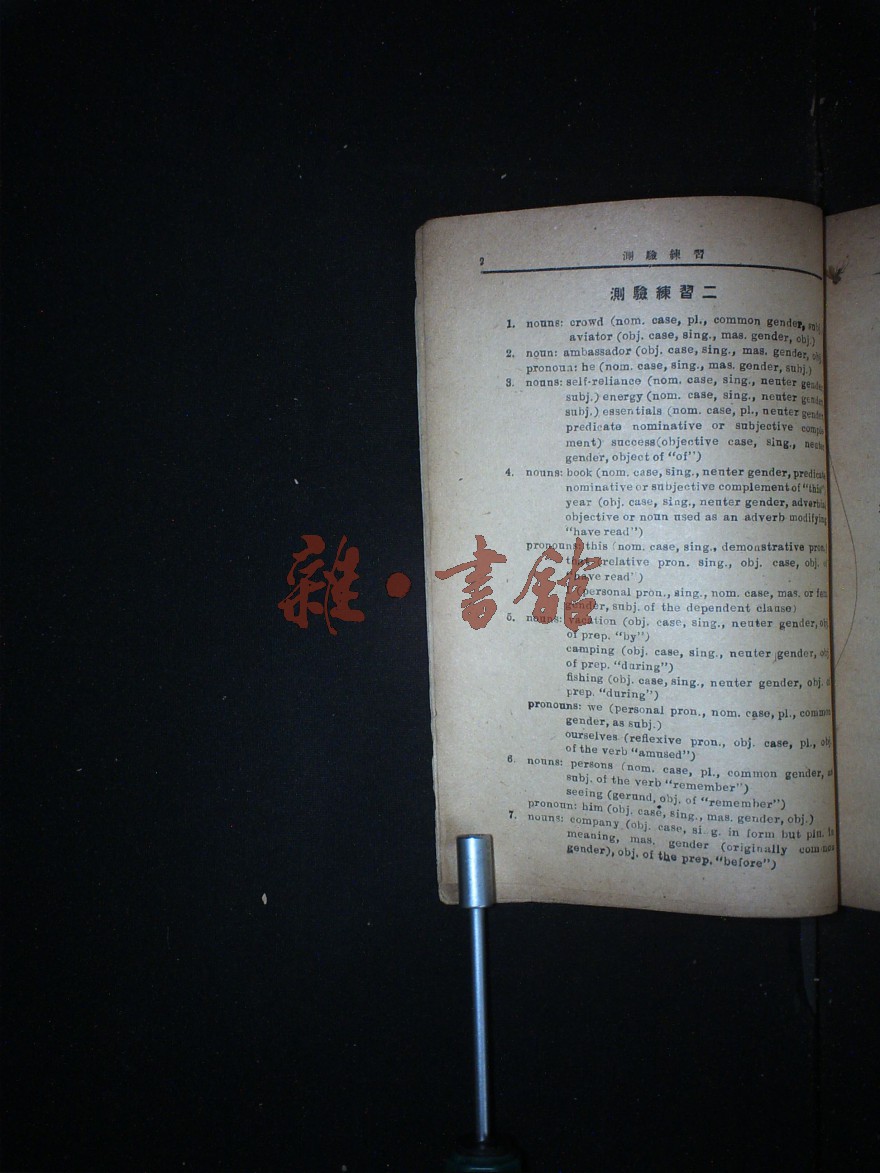 2
測驗練習
測驗練習二
1. nouns: crowd (nom. case, pl., common gender, subj
aviator (obj. case, sing., mas. gender, obj.)
2. noun: ambassador (obj. case, sing., mas. gender, obj
pronoun: he (nom. case, sing., mas. gender, subj.)
3. nouns: self-reliance (nom. case, sing., neuter gende
subj.) energy (nom. case, sing., neuter gender
subj.) essentials (nom. case, pl., neuter gender
predicate nominative or subjective comple
ment) success(objective case, sing., neuter
gender, object of "of")
4. nouns: book (nom. case, sing., neuter gender, predicate
nominative or subjective complement of "this"
year (obj. case, sing., neuter gender, adverbial
objective or noun used as an adverb modifying
"have read")
pronouns: this (nom. case, sing., demonstrative pron.
that (relative pron. sing., obj. case, obj. of
"have read")
(personal pron., sing., nom. case, mas. or fem.
gender, subj. of the dependent clause)
5. nouns: vacation (obj. case, sing., neuter gender, obj
of prep. "by")
camping (obj. case, sing., neuter gender, obj
of prep. "during")
fishing (obj. case, sing., neuter gender, obj. of
prep. "during")
pronouns: we (personal pron., nom. case, pl., common
gender, as subj.)
ourselves (reflexive pron., obj. case, pl., obj
of the verb "amused")
6. nouns: persons (nom. case, pl., common gender, as
subj. of the verb "remember")
seeing (gerund, obj. of "remember")
pronoun: him (obj. case, sing., mas. gender, obj.)
7. nouns: company (obj. case, si g. in form but plu. in
meaning, mas. gender (originally common
gender), obj. of the prep. "before")
雜·書館